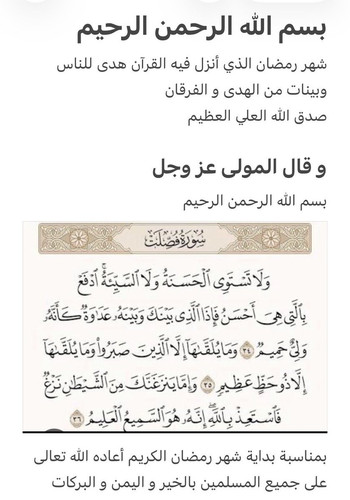 بسم الله الرحمن الرحيم
شهر رمضان الذي أنزل فيه القرآن هدى للناس
وبينات من الهدى و الفرقان
صدق الله العلي العظيم
و قال المولى عز وجل
بسم الله الرحمن الرحيم
سُورَةُ فُصِّلَتْ
وَلَا تَسْتَوِى ٱلْحَسَنَةُ وَلَا ٱلسَّيِّئَةُ ۚ ٱدْفَعْ
بِٱلَّتِى هِىَ أَحْسَنُ فَإِذَا ٱلَّذِى بَيْنَكَ وَبَيْنَهُۥ عَدَٰوَةٌ كَأَنَّهُۥ
وَلِىٌّ حَمِيمٌ ٣٤ وَمَا يُلَقَّىٰهَآ إِلَّا ٱلَّذِينَ صَبَرُوا۟ وَمَا يُلَقَّىٰهَآ
إِلَّا ذُو حَظٍّ عَظِيمٍ ٣٥ وَإِمَّا يَنزَغَنَّكَ مِنَ ٱلشَّيْطَٰنِ نَزْغٌ
فَٱسْتَعِذْ بِٱللَّهِ ۖ إِنَّهُۥ هُوَ ٱلسَّمِيعُ ٱلْعَلِيمُ ٣٦
بمناسبة بداية شهر رمضان الكريم أعاده الله تعالى
على جميع المسلمين بالخير و اليمن و البركات